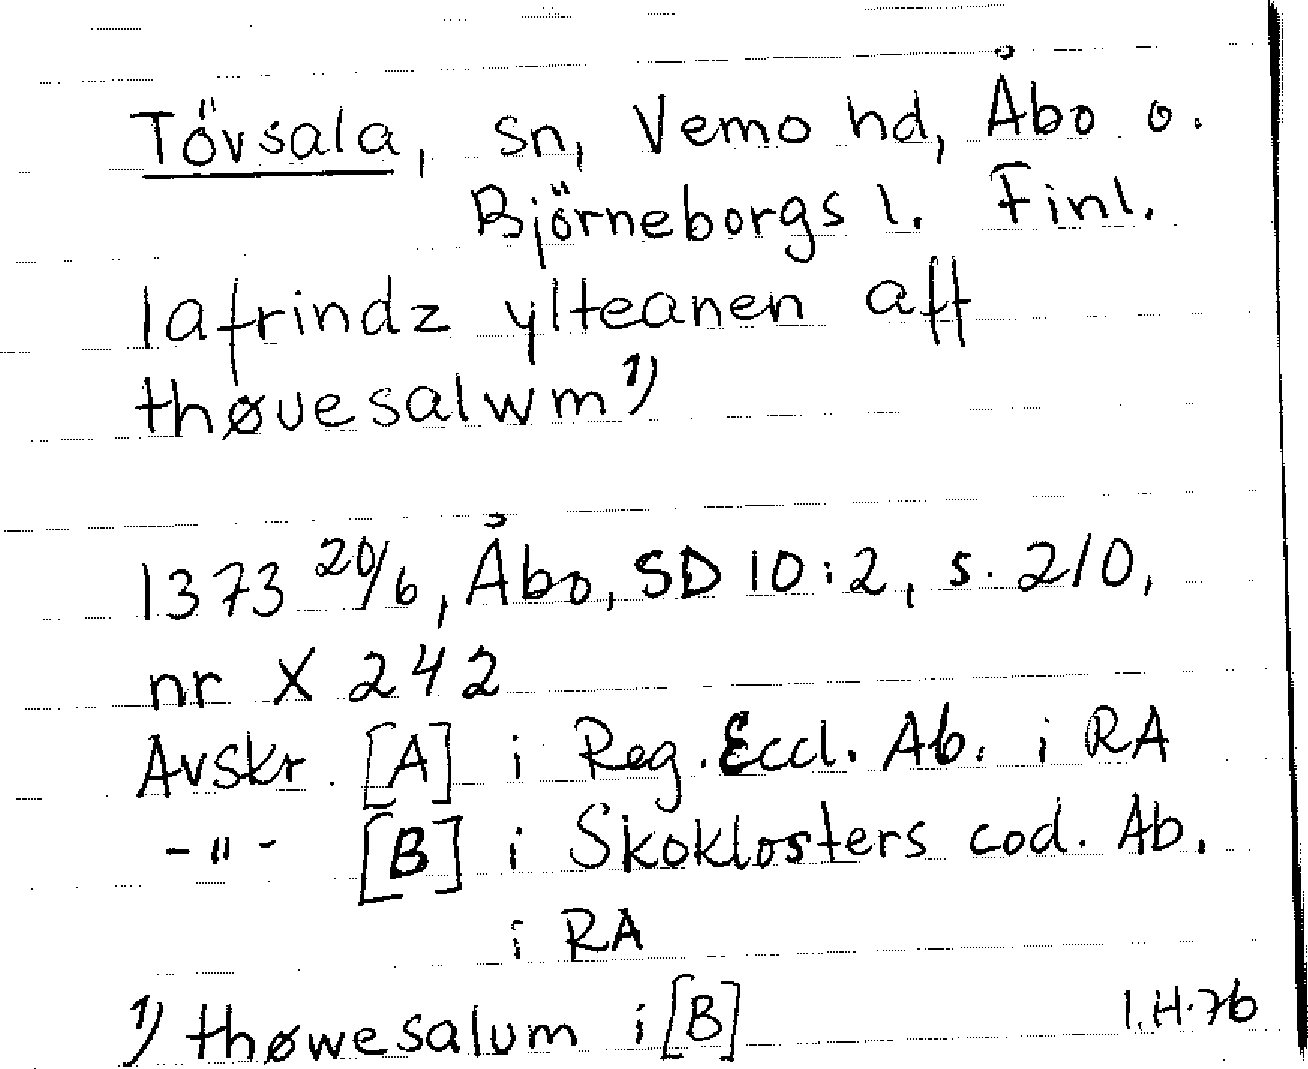 Tövsala, sn, Vemo hd, Åbo o.
Björneborgs l. Finl.
lafrindz ylteanen aff
thøuesalwm 1)
1373 20/6, Åbo, SD 10:2, s. 210,
nr X 242
Avskr. [A] i Reg. Eccl. Ab. i RA
-"- [B] i Skoklosters cod. Ab.
i RA
1) thøwesalum i [B]
I.H.76